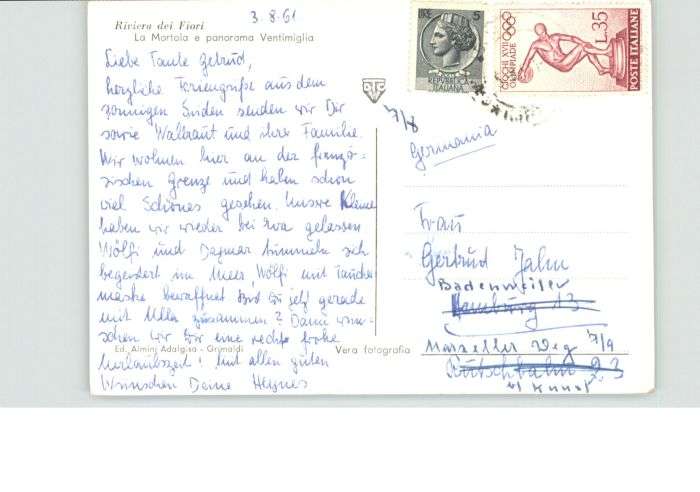 3.8.61
Riviera dei Fiori
La Mortola e panorama Ventimiglia
Liebe Tante Getrud,
herzliche Feriengrüße aus dem
sonnigen Süden senden wir Dir
sowie Waltraut und ihrer Familie.
Wir wohnen hier an der franzö-
sischen Grenze und haben schon
viel Schönes gesehen. Unsere Kleine
haben wir wieder bei gelassen
Wölfi und Dagmar tummeln sich
begeistert im Meer, Wölfi mit Taucher
maske bewaffnet Bist Du jetzt gerade
mit Ulla zusammen? Dann wün-
schen wir Dir eine recht frohe
Urlaubszeit! Mit allen guten
Wünschen Deine Heynes
Ed. Almini Adalgisa - Grimaldi
Vera fotografia
5
REPUBBLICA
ITALIANA
GIOCHI XVII
OLIMPIADE
L.35
POSTE ITALIANE
Germania
Frau
Gertrud Jahn
Badenweiler
Hamburg 13
Marzeller Weg 7/9
23